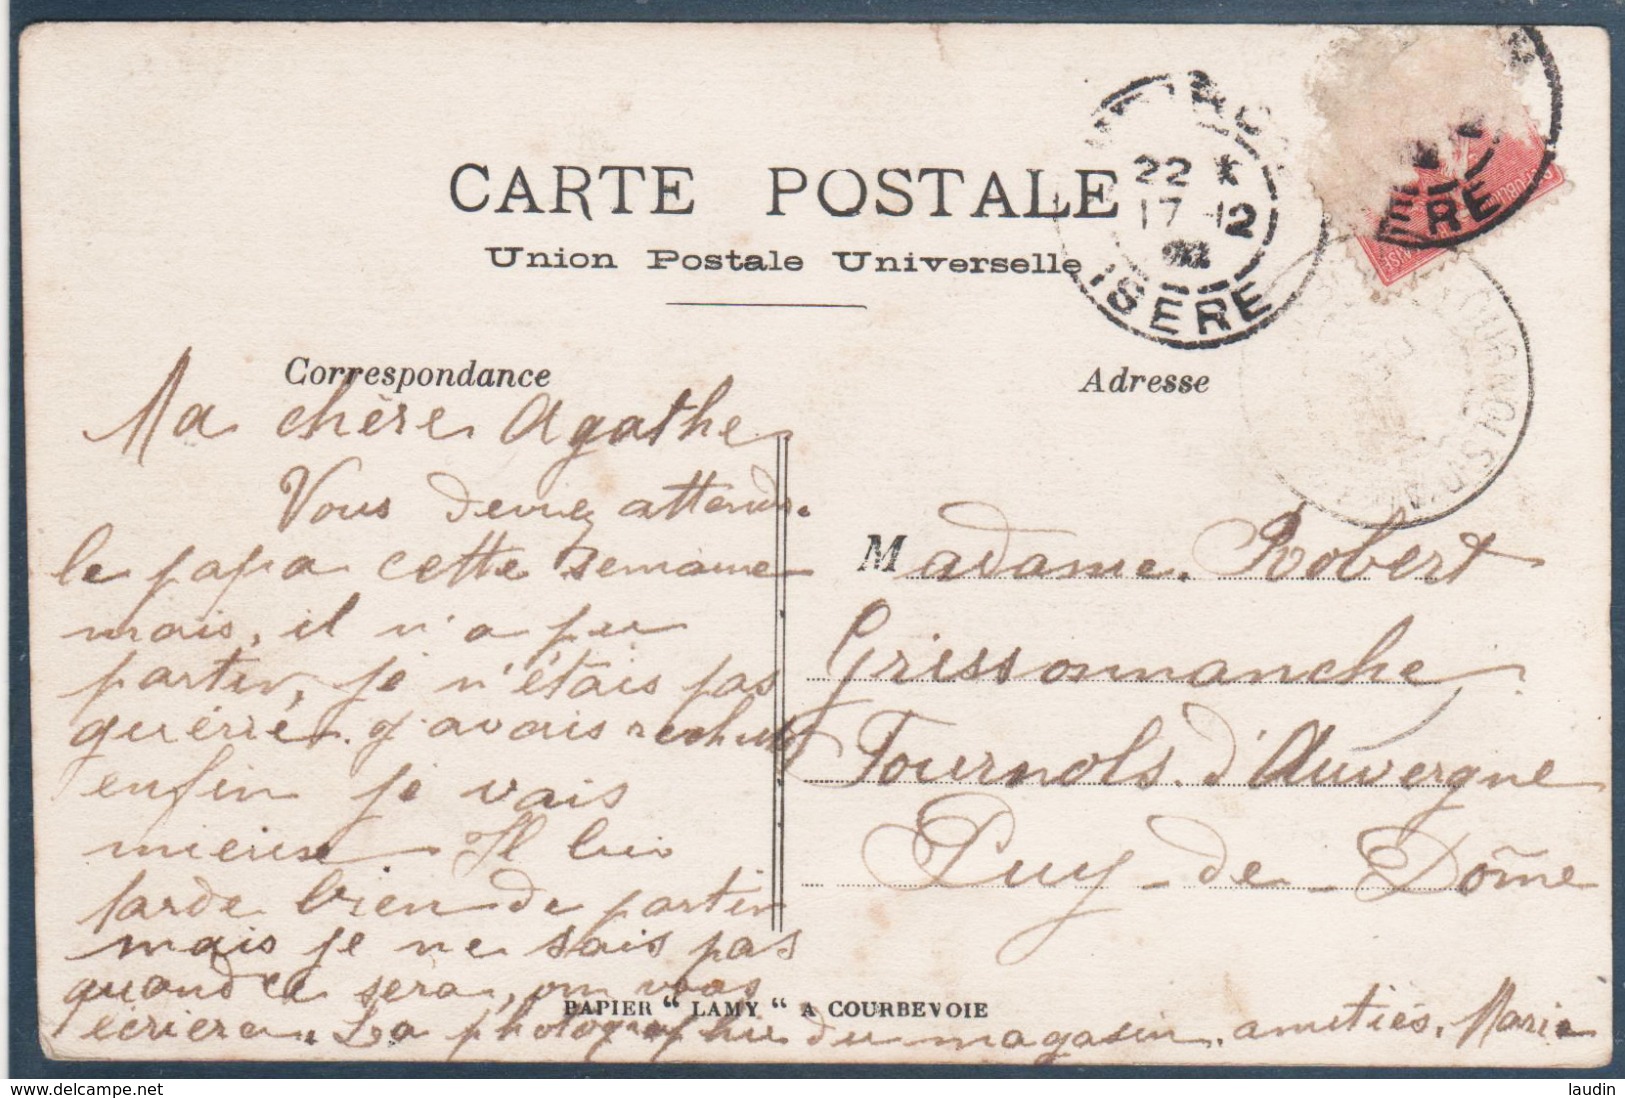 CARTE POSTALE
Union Postale Universelle
22 * 17-12
ISERE
ERE
TOURNOLS-D'AU
Correspondance
Ma chère Agathe
Vous deviez attends.
le papa cette semaine
mais, il n'a pu
partir, je n'étais pas
guérrié. j'avais rechuté
enfin je vais
mieux. Il lui
tarde bien de partir
mais je ne sais pas
quand ce sera, on vous
écriera. La photographie du magasin. amitiés. Marie
Adresse
Madame. Robert
Grissonnanche
Fournols. d'Auvergne
Puy-de-Dôme
PAPIER "LAMY" A COURBEVOIE
laudin